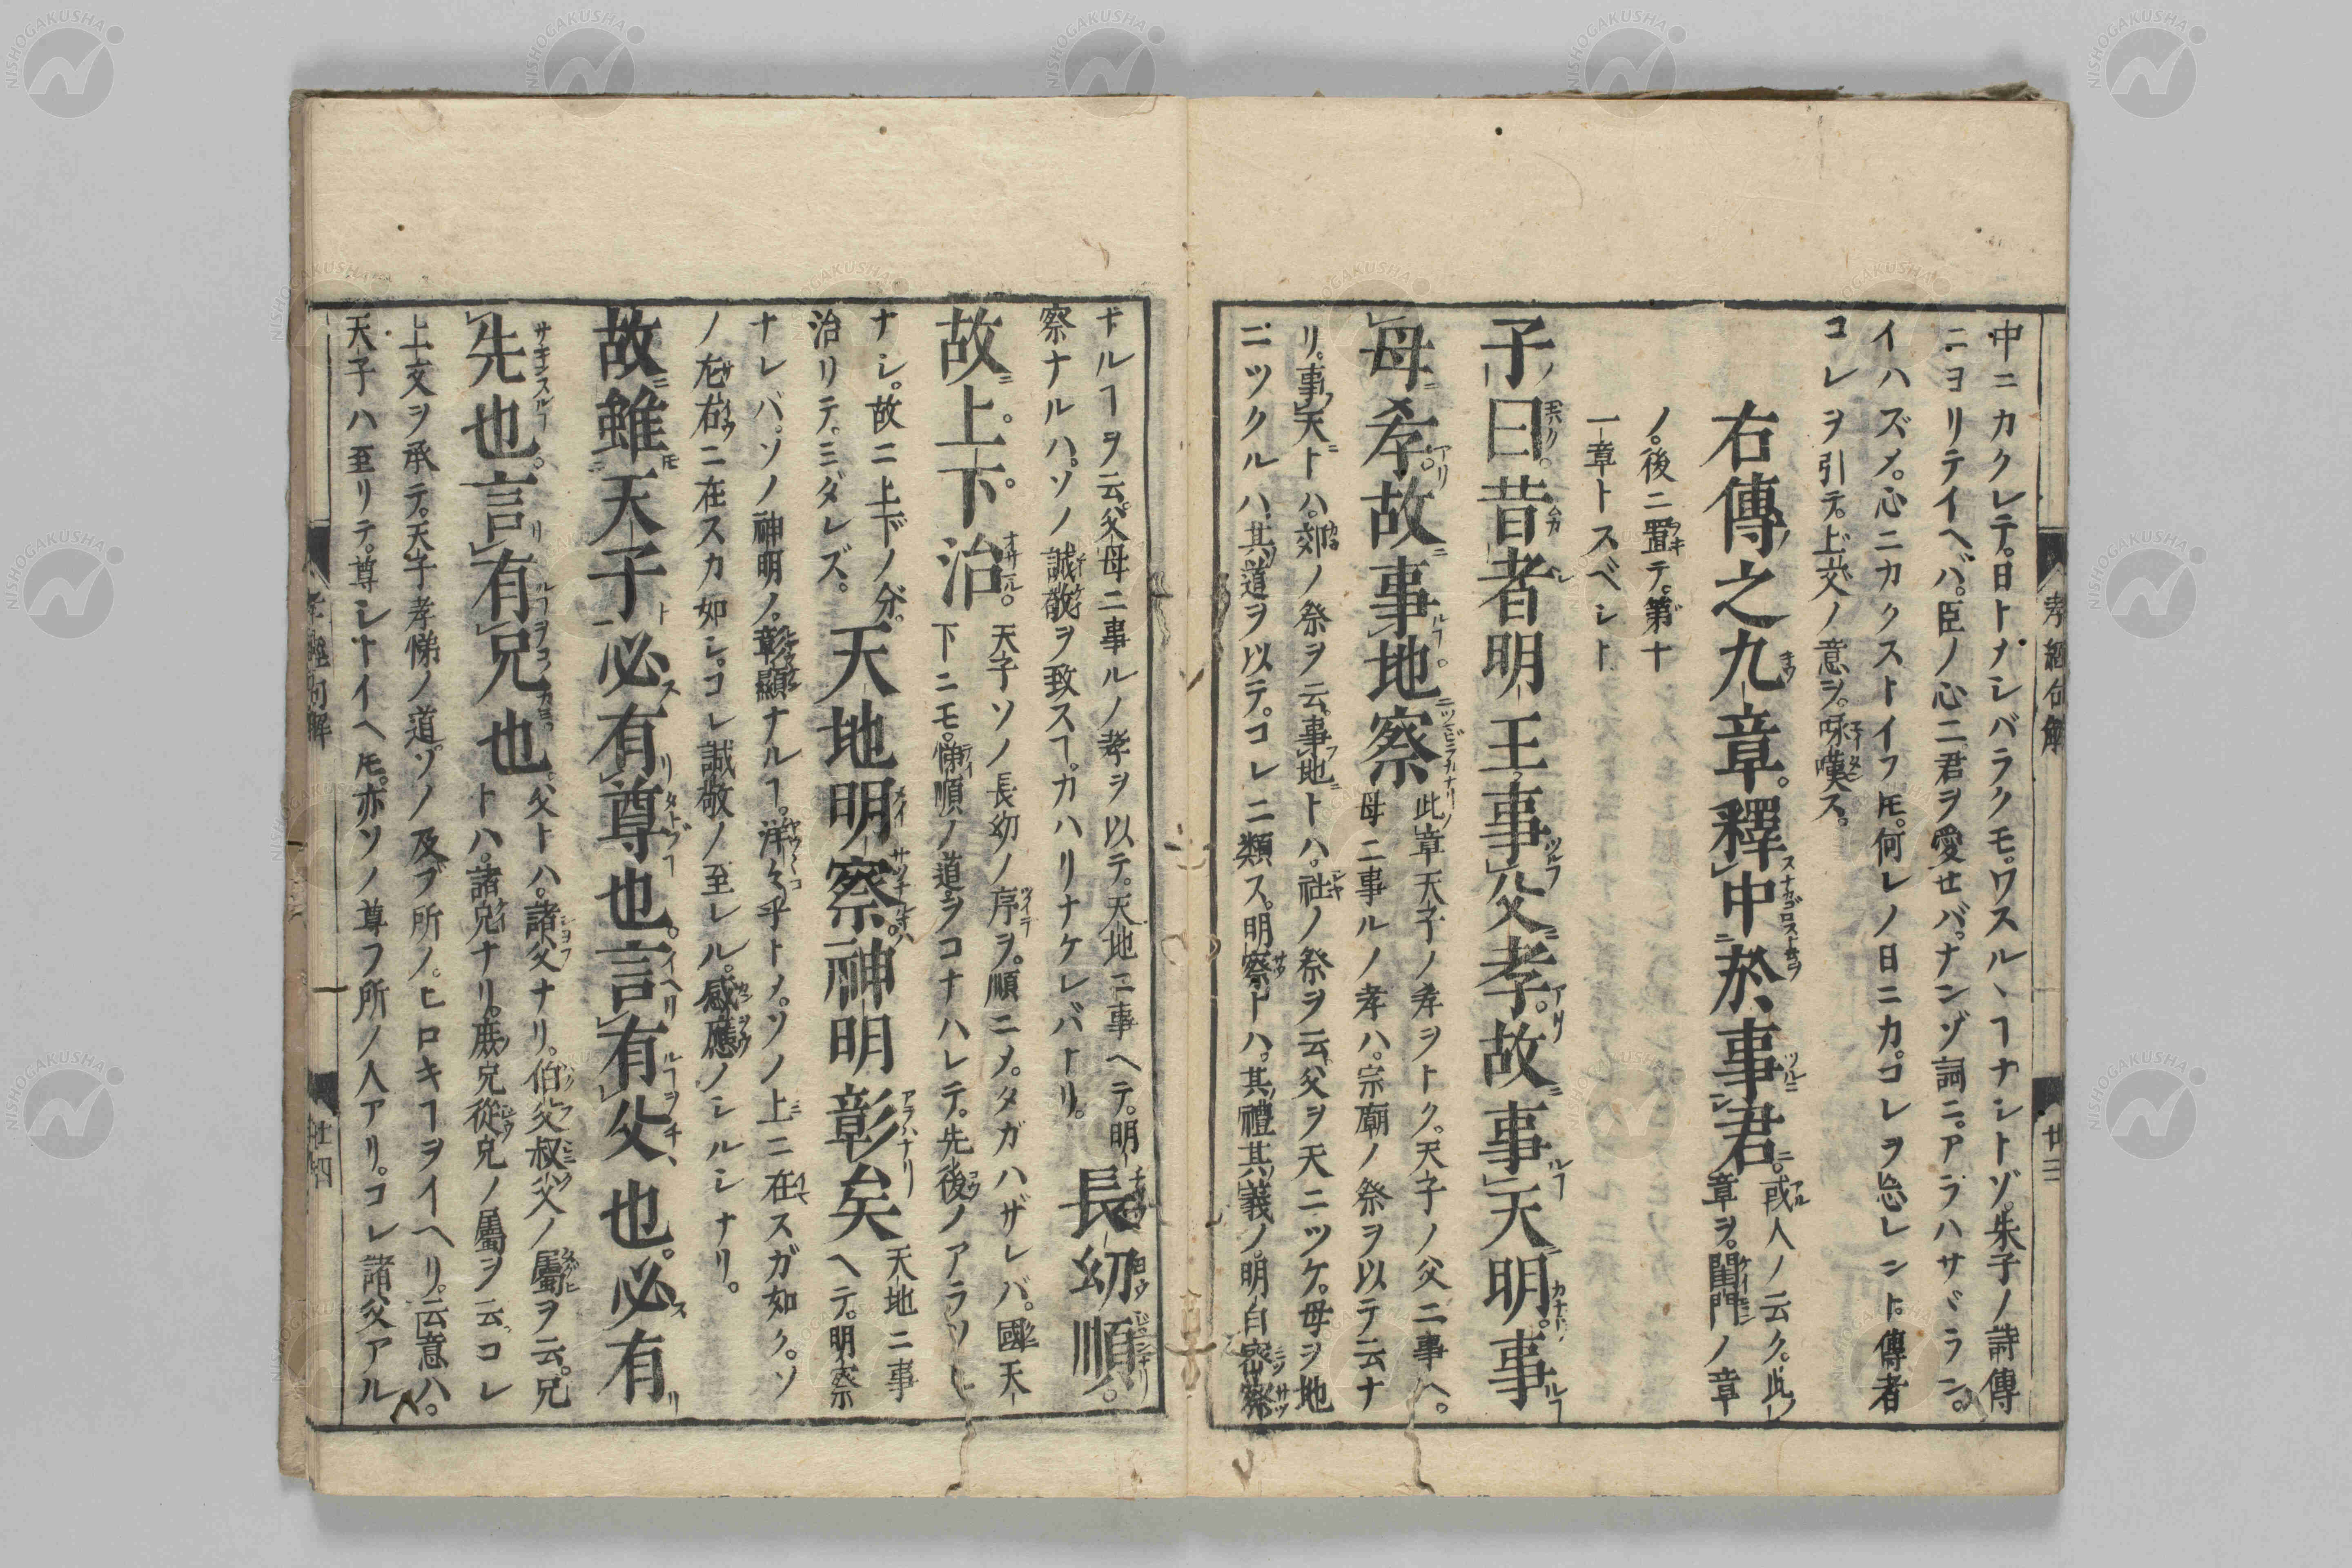 中ニカクレテ。日トメシバラクモ。ワスルヽヿナシトゾ。朱子ノ詩傳
ニヨリテイヘバ。臣ノ心ニ。君ヲ愛せバ。ナンゾ詞ニ。アラハサヾラン。
イハズメ。心ニカクストイフ𪜈。何レノ日ニカ。コレヲ忘レント。傳者
コレヲ引テ。上文ノ意ヲ。咏嘆ス。
右傳之九章。釋中於事君。
或人ノ云ク。此
章ヲ。閨門ノ章
ノ。後ニ置テ。第十
一章トスベシト
子曰。昔者明王事父孝。故事天明。事
母孝。故事地察
此章天子ノ孝ヲトク。天子ノ父ニ事ヘ。
母ニ事ルノ孝ハ。宗廟ノ祭ヲ以テ云ナ
リ。事天トハ。郊ノ祭ヲ云。事地トハ。社ノ祭ヲ云。父ヲ天ニツケ。母ヲ地
ニツクルハ。其道ヲ以テ。コレニ類ス。明察トハ。其禮其義ノ。明白密察
孝經句解
廿三
ナルヿヲ云。父母ニ事ルノ孝ヲ以テ。天地ニ事ヘテ。明
察ナルハ。ソノ誠敬ヲ致スヿ。カハリナケレバナリ。
長幼順。
故上。下。治
天子ソノ長幼ノ序ヲ。順ニメ。タガハザレバ。國天
下ニモ。悌順ノ道ヲコナハレテ。先後ノアラソヒ
ナシ。故ニ上下ノ分。
治リテ。ミダレズ。
天地明察。神明彰矣
天地ニ事
ヘテ。明察
ナレバ。ソノ神明ノ。彰顯ナルヿ。洋々乎トメ。ソノ上ニ在スガ如ク。ソ
ノ左右ニ在スカ如シ。コレ誠敬ノ至レル。感應ノシルシナリ。
故雖天子必有尊也。言有父也。必有
先也。言有兄也
父トハ。諸父ナリ。伯父叔父ノ屬ヲ云。兄
トハ。諸兄ナリ。庶兄從兄ノ屬ヲ云。コレ
上文ヲ承テ。天子孝悌ノ道。ソノ及ブ所ノ。ヒロキヿヲイヘリ。云意ハ。
天子ハ至リテ。尊シトイヘ𪜈。亦ソノ尊フ所ノ人アリ。コレ諸父アル
句解
廿四